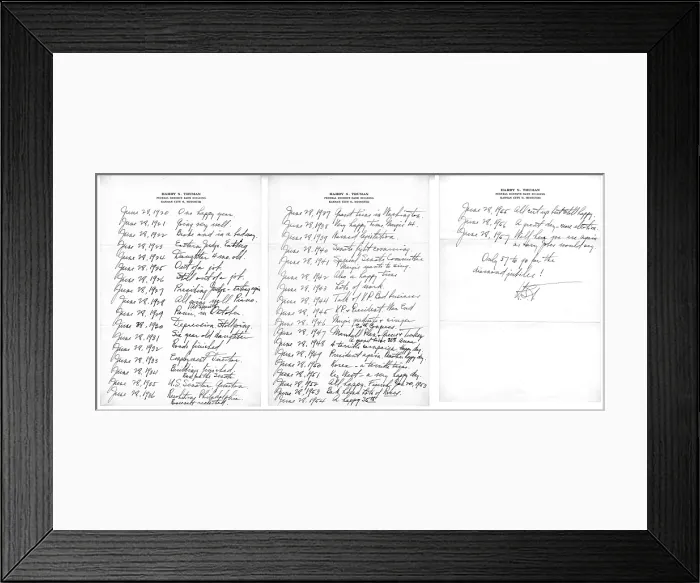 HARRY S. TRUMAN
FEDERAL RESERVE BANK BUILDING
KANSAS CITY 6, MISSOURI
June 28, 1920 One happy year.
June 28, 1921 Going very well.
June 28, 1922 Broke and in a bad way.
June 28, 1923 Eastern Judge. Eating
June 28, 1924 Daughter 4 mo. old
June 28, 1925 Out of a job.
June 28, 1926 Still out of a job.
June 28, 1927 Presiding Judge - eating again
June 28, 1928 All going well. Piano.
June 28, 1929 Panic, in October.
June 28, 1930 Depression. Still going.
June 28, 1931 Six year old daughter
June 28, 1932 Roads finished
June 28, 1933 Employment Director.
June 28, 1934 Buildings finished
Ran for the Senate
June 28, 1935 U.S. Senator. Gunston
June 28, 1936 Resolutions Philadelphia
HARRY S. TRUMAN
FEDERAL RESERVE BANK BUILDING
KANSAS CITY 6, MISSOURI
June 28, 1937 Grand time in Washington.
June 28, 1938 Very happy time. Margie 14.
June 28, 1939 Named legislation
June 28, 1940 Senate fight coming
June 28, 1941 Special Senate Committee
Margie wants to sing.
June 28, 1942 Also a happy time
June 28, 1943 Lots of work
June 28, 1944 Talk of V.P. Bad business
June 28, 1945 V.P. & President. War End
June 28, 1946 Margie graduate & singer
80th Congress
June 28, 1947 Marshall Plan & Greece & Turkey
A grand time 28th Anniv.
June 28, 1948 A terrible campaign. Happy day.
June 28, 1949 President again. Another happy day.
June 28, 1950 Korea - a terrible time.
June 28, 1951 Key West - a very happy day.
June 28, 1952 All happy. Finish, Jan. 20, 1953
June 28, 1953 Back home. Lots of Roses.
June 28, 1954 A happy 35th
HARRY S. TRUMAN
FEDERAL RESERVE BANK BUILDING
KANSAS CITY 6, MISSOURI
June 28, 1955 All cut up but still happy.
June 28, 1956 A great day - more elation.
June 28, 1957 Well here we are again
as Harry Jobes would say.
Only 37 to go for the
diamond jubilee!
H.S.T.